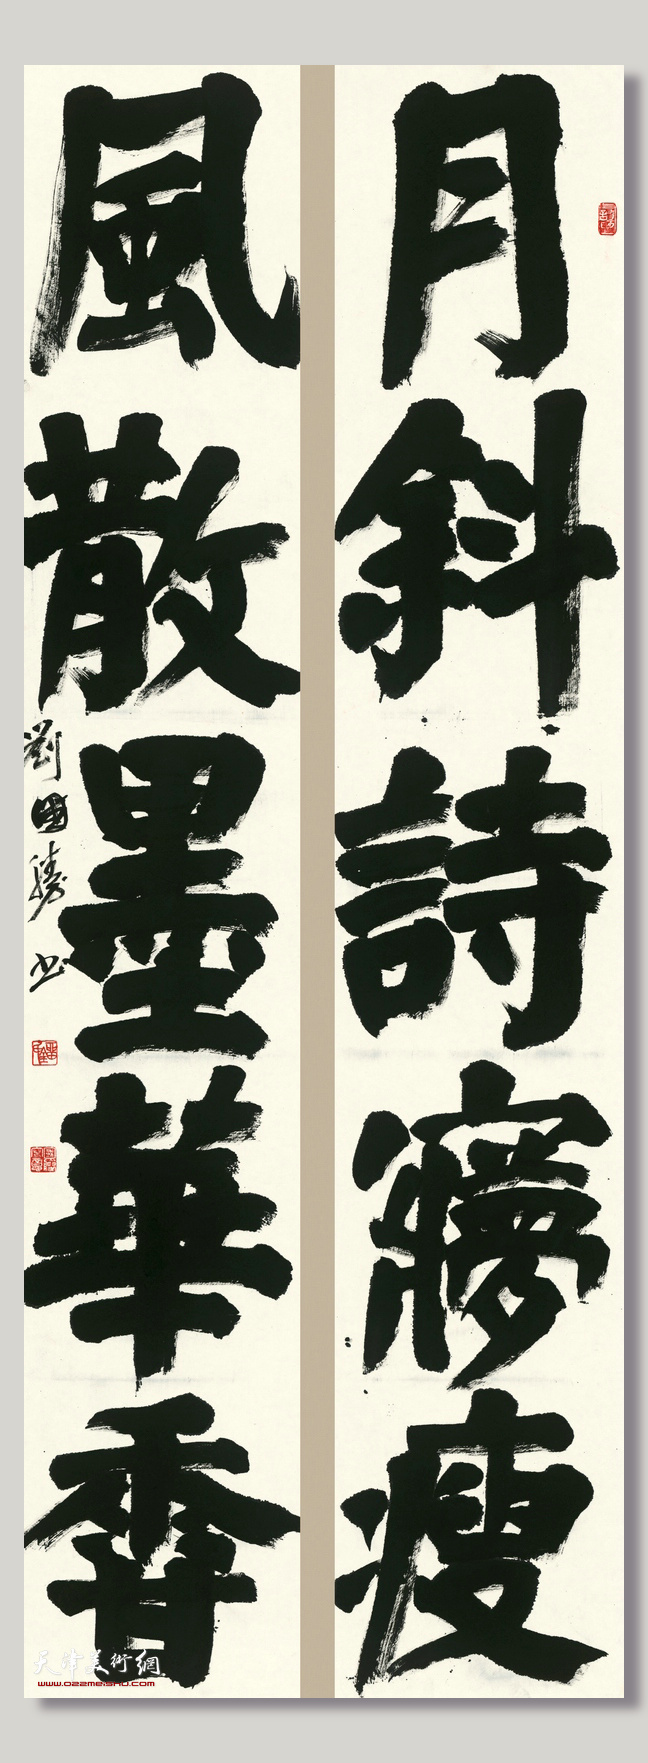 月斜詩寱瘦
風散墨華香
劉國勝書
天津美術網
www.022meishu.com